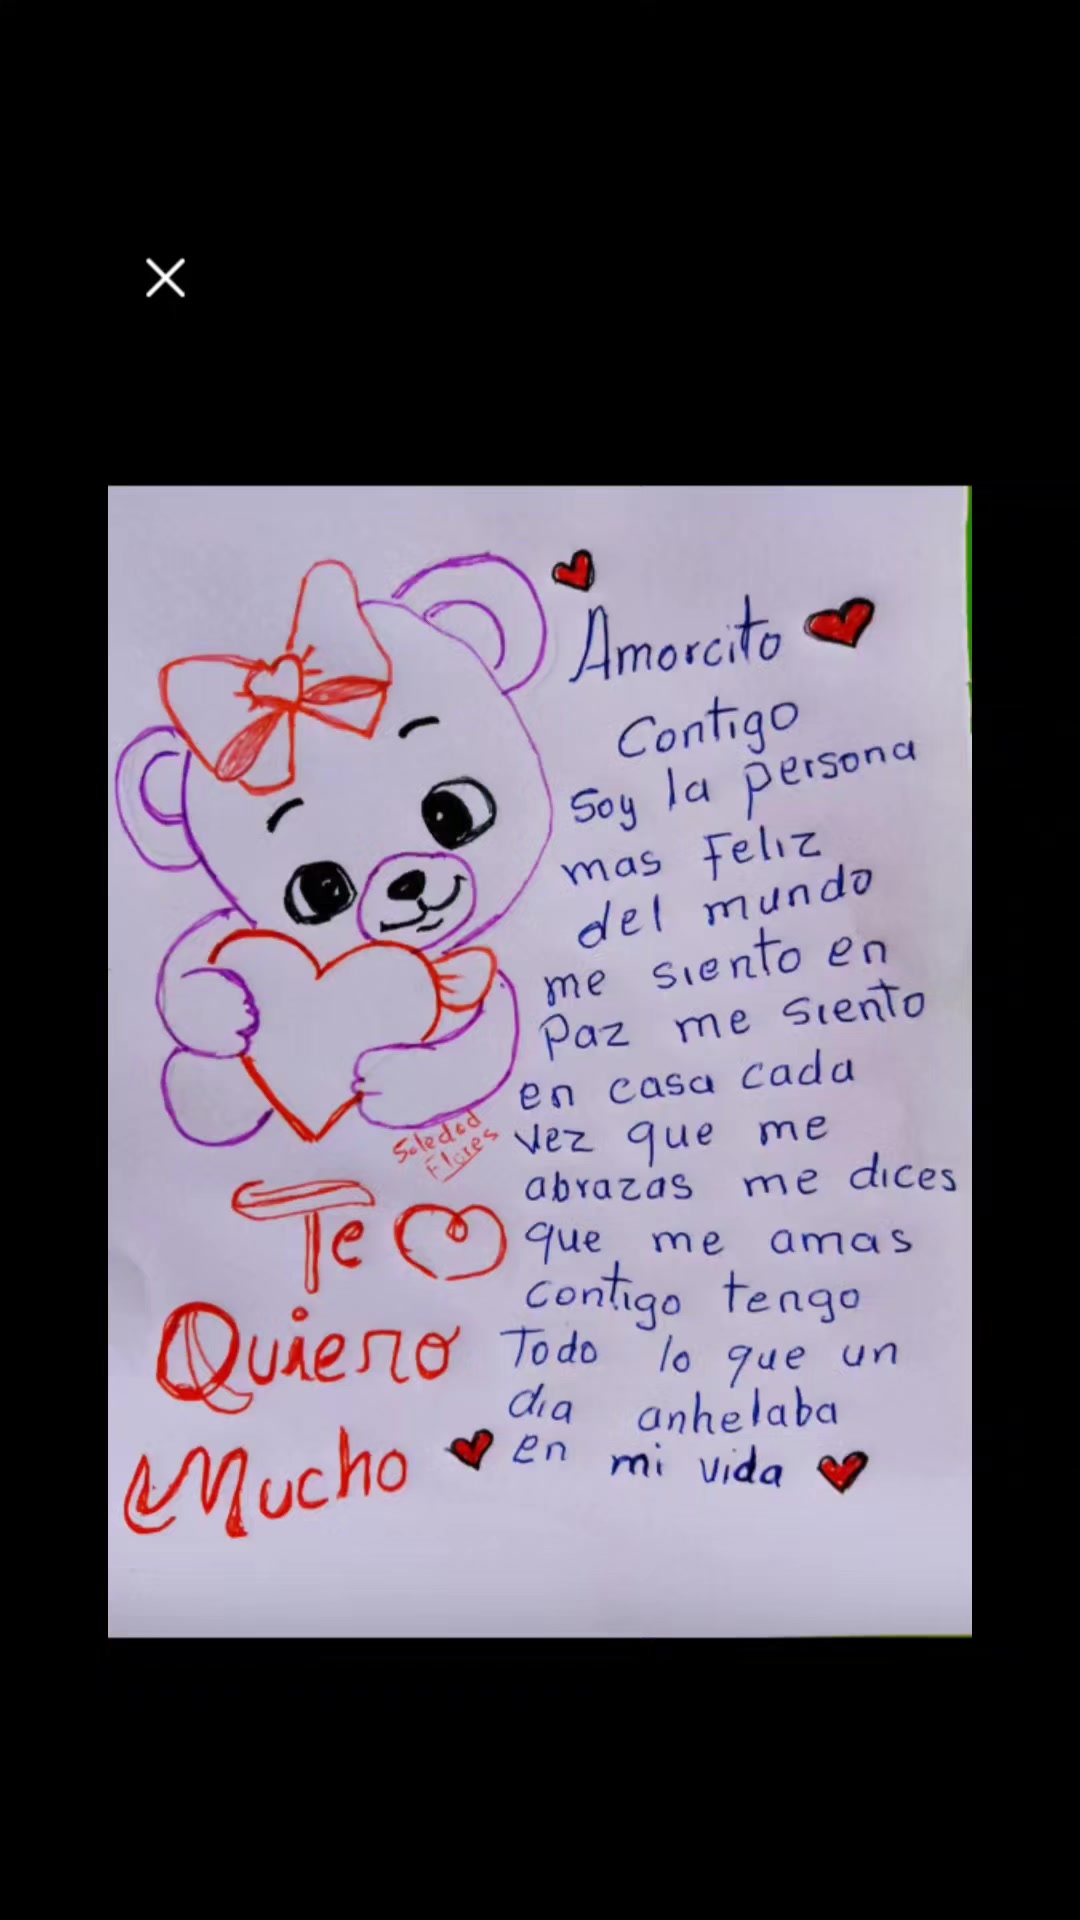 Amorcito
Contigo
soy la persona
mas Feliz
del mundo
me siento en
Paz me siento
en casa cada
vez que me
abrazas me dices
que me amas
contigo tengo
Todo lo que un
dia anhelaba
en mi vida
Soledad
Flores
Te
Quiero
Mucho